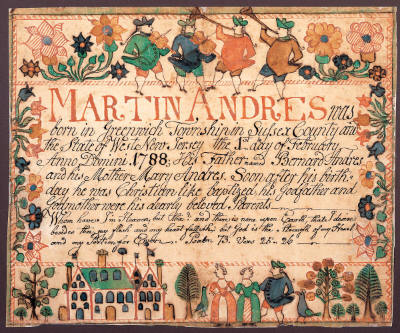 MARTIN ANDRES was
born in Greenwich Township in Sussex County and
the State of West New Jersey the 1st day of February
Anno Domini 1788. His Father was Bernard Andres
and his Mother Mary Andres. Soon after his birth-
day he was Christian like baptized his Godfather and
Godmother were his dearly beloved Parents
Whom have I in Heaven but thee? and there is none upon Earth, that I desire
besides thee, my flesh and my heart faileth, but God is the Strength of my Heart
and my Portion for Ever. Psalm 73. Vers 25-26